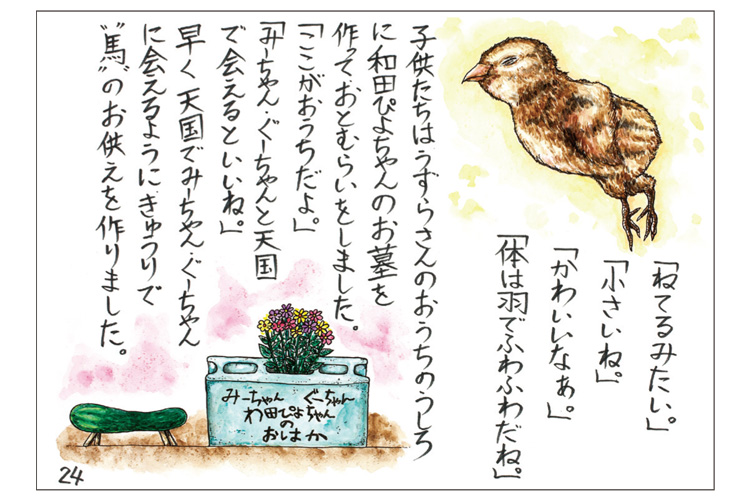 「ねてるみたい。」
「小さいね。」
「かわいいなぁ。」
「体は羽でふわふわだね。」
子供たちはうずらさんのおうちのうしろ
に和田ぴよちゃんのお墓を
作っておとむらいをしました。
「ここがおうちだよ。」
「みーちゃん・ぐーちゃんと天国
で会えるといいね。」
早く天国でみーちゃん・ぐーちゃん
に会えるようにきゅうりで
"馬"のお供えを作りました。
みーちゃん ぐーちゃん
わ田ぴよちゃん
の
おはか
24